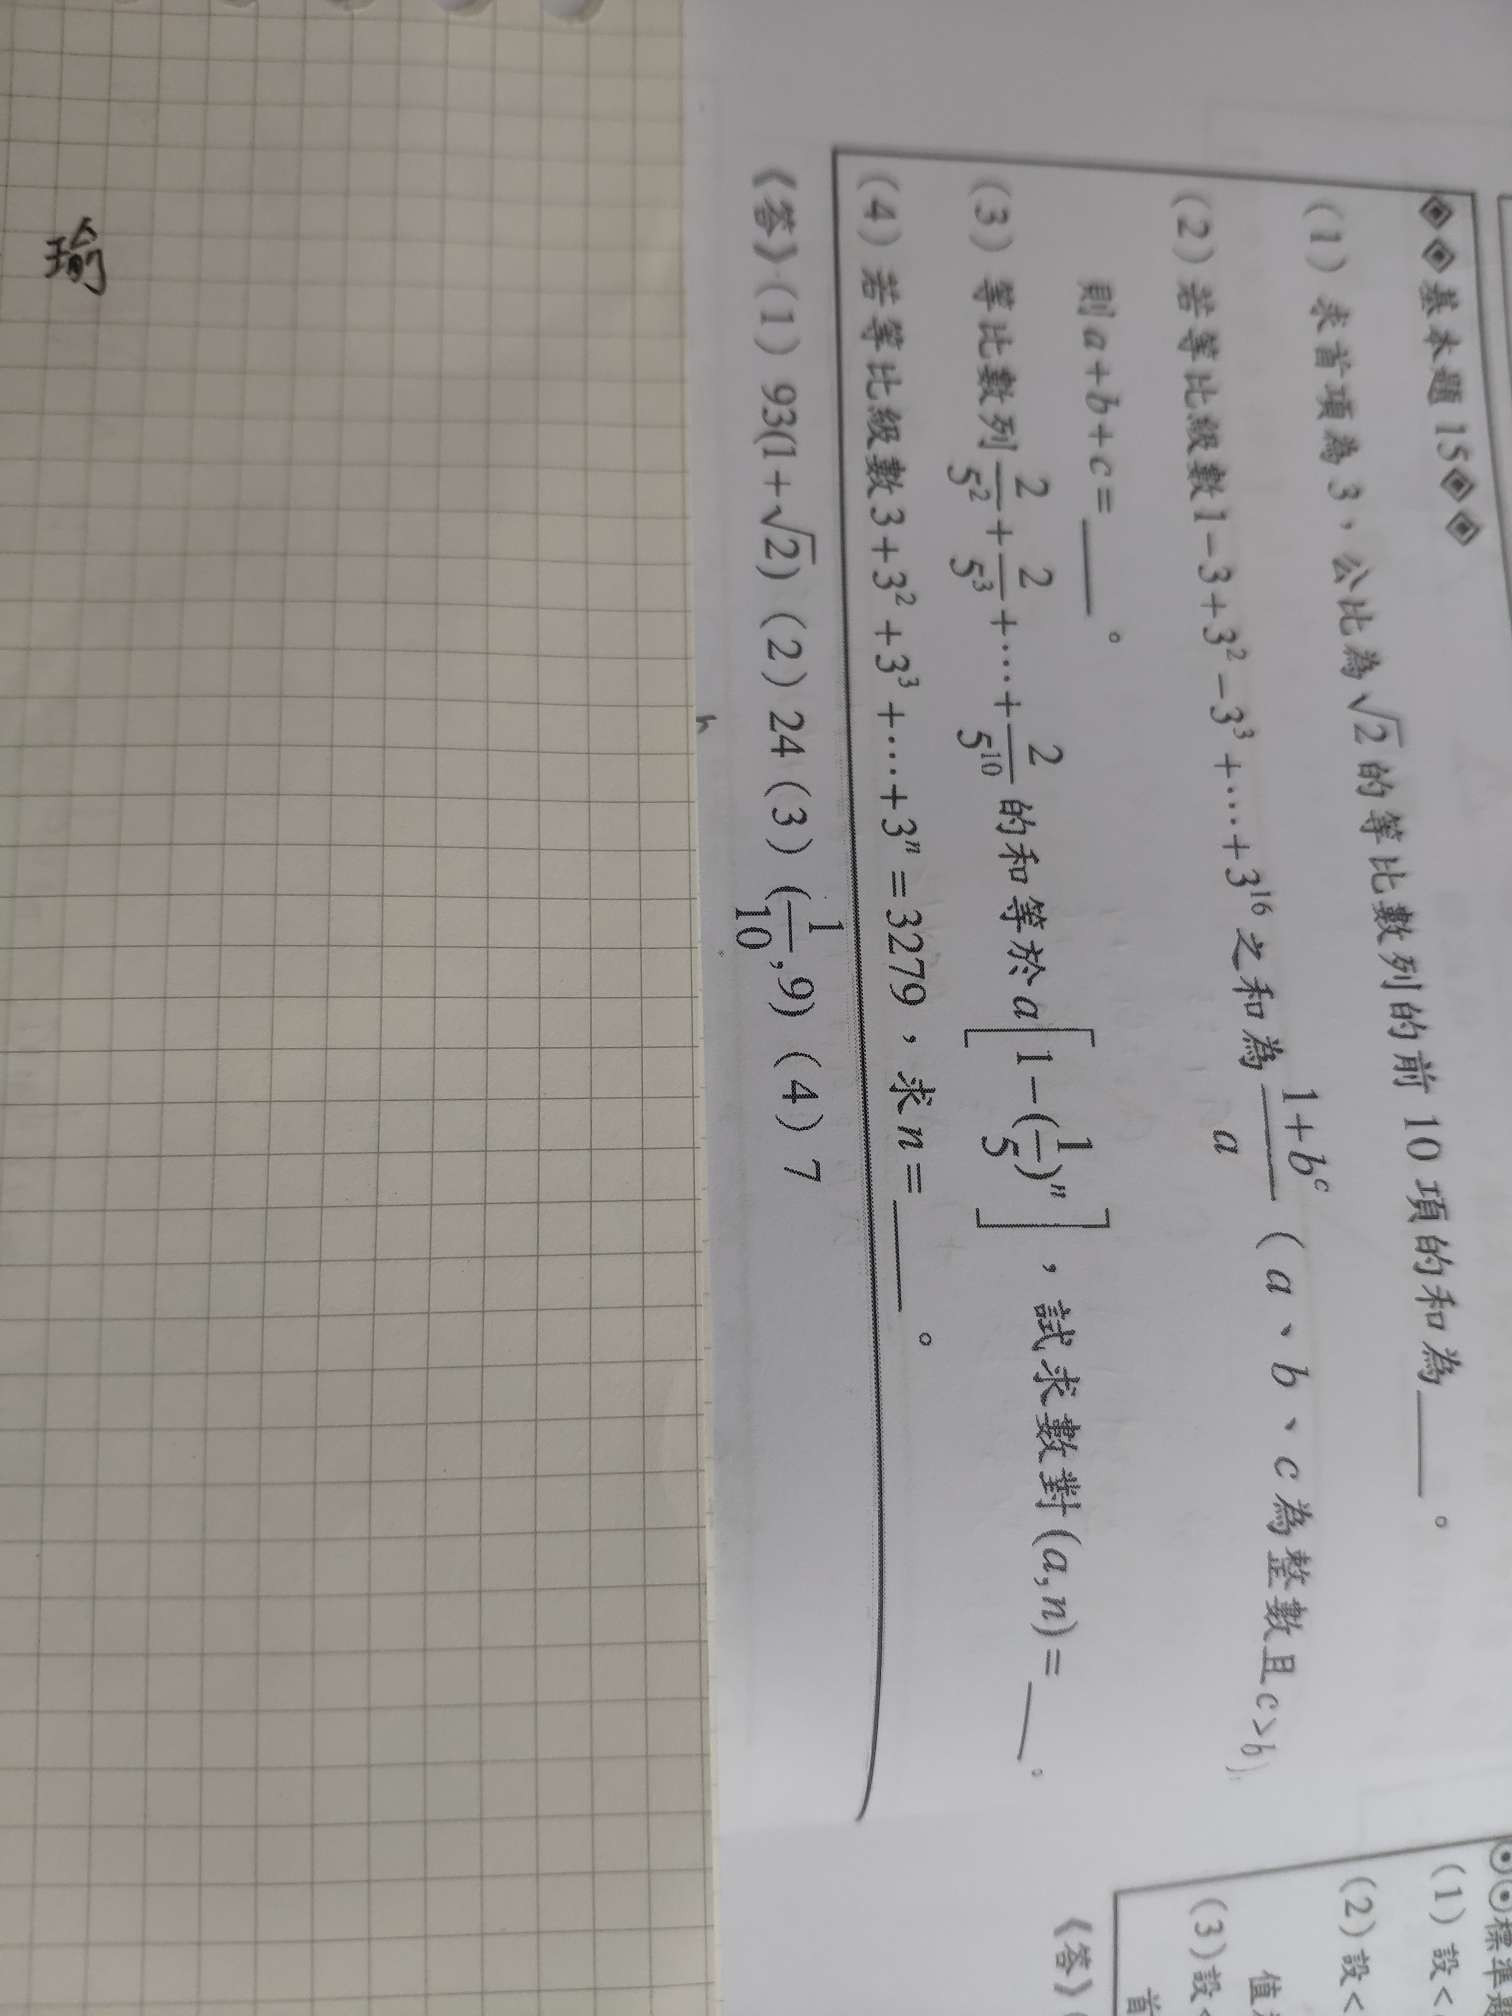 ◈◈基本題 15◈◈
(1) 求首項為 3、公比為√2 的等比數列的前 10 項的和為____。
(2) 若等比級數1−3+3²−3³+⋯+3¹⁶之和為 (1+bᶜ)/a (a、b、c為整數且c>b),
則a+b+c=____。
(3) 等比數列 2/5²+2/5³+⋯+2/5¹⁰ 的和等於a[1−(1/5)ⁿ],試求數對(a,n)=____.
(4) 若等比級數3+3²+3³+⋯+3ⁿ=3279,求n=____。
《答》(1) 93(1+√2) (2) 24 (3) (1/10,9) (4) 7
瑜
(1) 設<
(2) 設<
值
(3) 設<
《答》